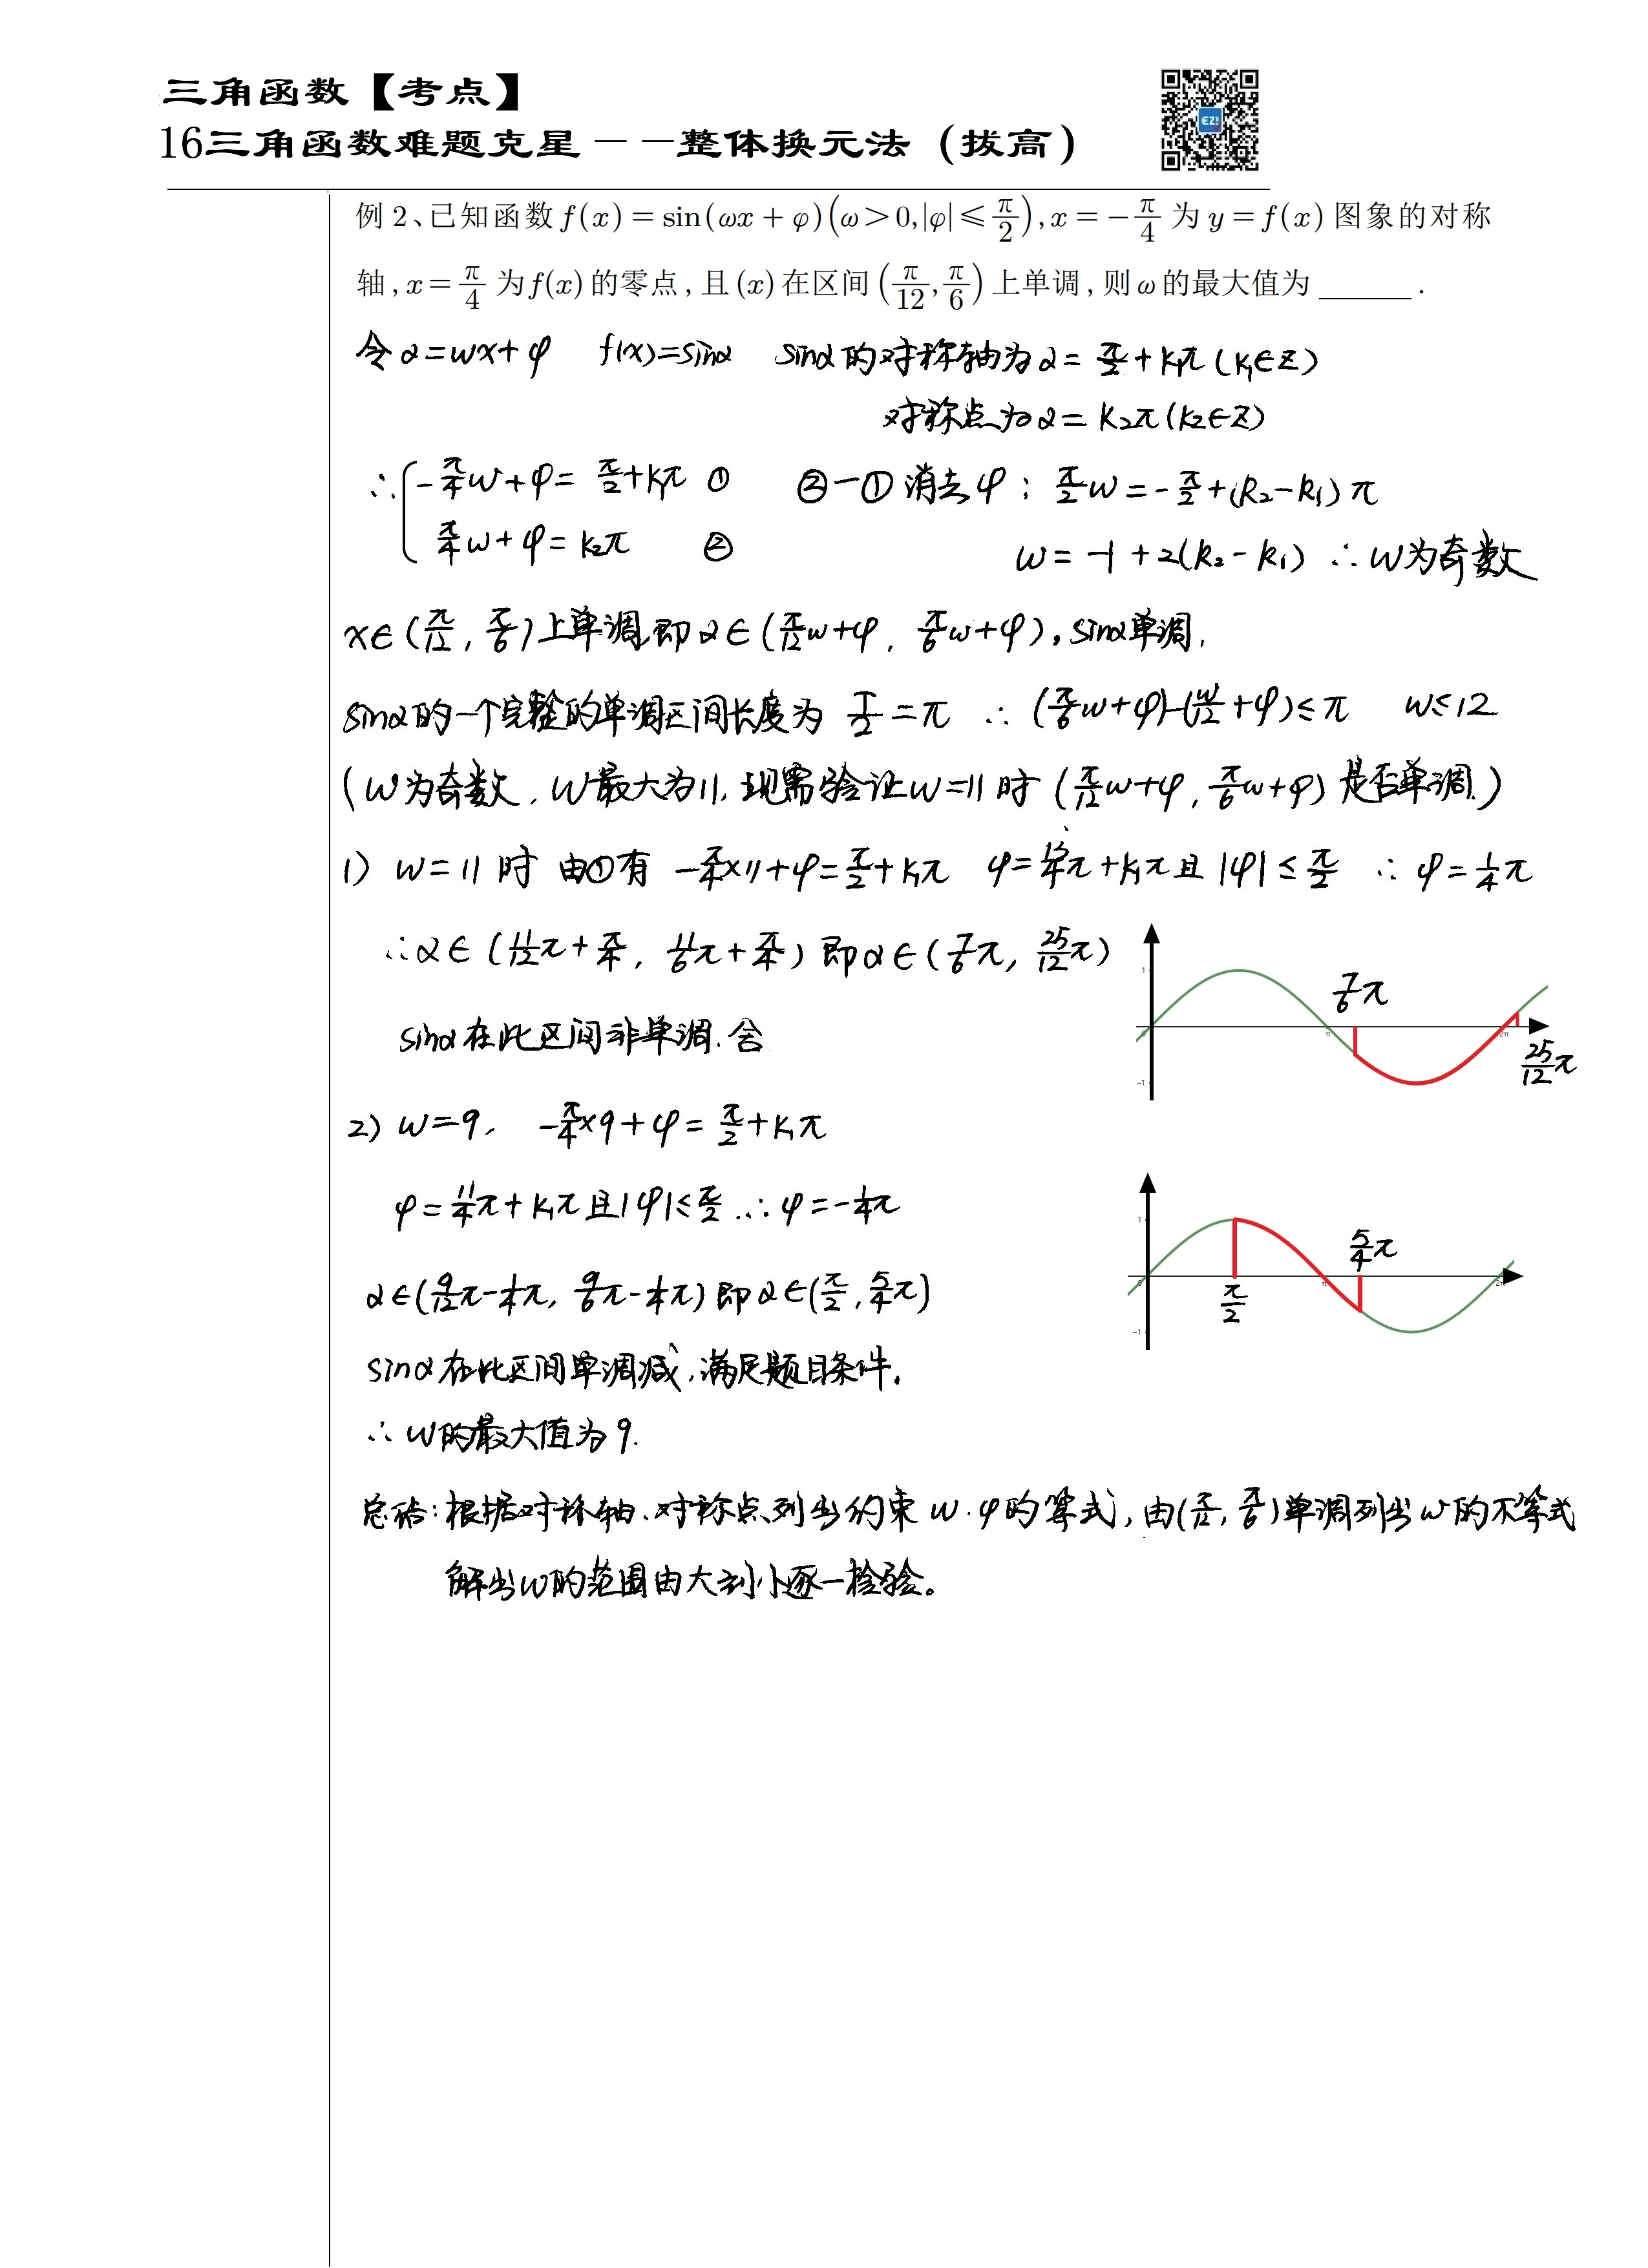 三角函数【考点】
16三角函数难题克星——整体换元法（拔高）
EZ!
例2、已知函数f(x)=sin(ωx+φ)(ω>0,|φ|≤π/2),x=-π/4为y=f(x)图象的对称
轴,x=π/4为f(x)的零点,且(x)在区间(π/12,π/6)上单调,则ω的最大值为______.
令α=wx+φ f(x)=sinα sinα的对称轴为α=π/2+k₁π(k₁∈Z)
对称点为α=k₂π(k₂∈Z)
∴{-π/4w+φ=π/2+k₁π ① ②-①消去φ：π/2w=-π/2+(k₂-k₁)π
π/4w+φ=k₂π ② w=-1+2(k₂-k₁) ∴w为奇数
x∈(π/12,π/6)上单调,即α∈(π/12w+φ,π/6w+φ),sinα单调,
sinα的一个完整的单调区间长度为T/2=π ∴(π/6w+φ)-(π/12w+φ)≤π w≤12
(w为奇数,w最大为11,现需验证w=11时(π/12w+φ,π/6w+φ)是否单调.)
1) w=11时 由①有 -π/4×11+φ=π/2+k₁π φ=13/4π+k₁π且|φ|≤π/2 ∴φ=1/4π
∴α∈(11/12π+π/4,11/6π+π/4)即α∈(7/6π,25/12π)
sinα在此区间非单调.舍
1
0
π
2π
-1
7/6π
25/12π
2) w=9, -π/4×9+φ=π/2+k₁π
φ=11/4π+k₁π且|φ|≤π/2 ∴φ=-1/4π
α∈(9/12π-1/4π,9/6π-1/4π)即α∈(π/2,5/4π)
1
0
π
2π
-1
π/2
5/4π
sinα在此区间单调减,满足题目条件.
∴w的最大值为9.
总结:根据对称轴、对称点列出约束w.φ的等式,由(π/12,π/6)单调列出w的不等式
解出w的范围由大到小逐一检验。